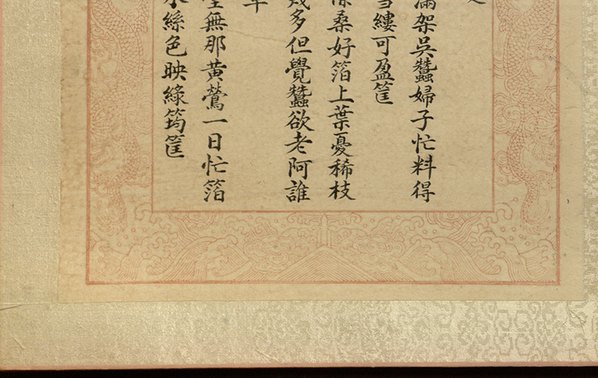 滿架吳蠶婦子忙料得
雪縷可盈筐
桑好箔上葉憂稀枝
幾多但覺蠶欲老阿誰
無那黃鶯一日忙箔
絲色映綠筠筐